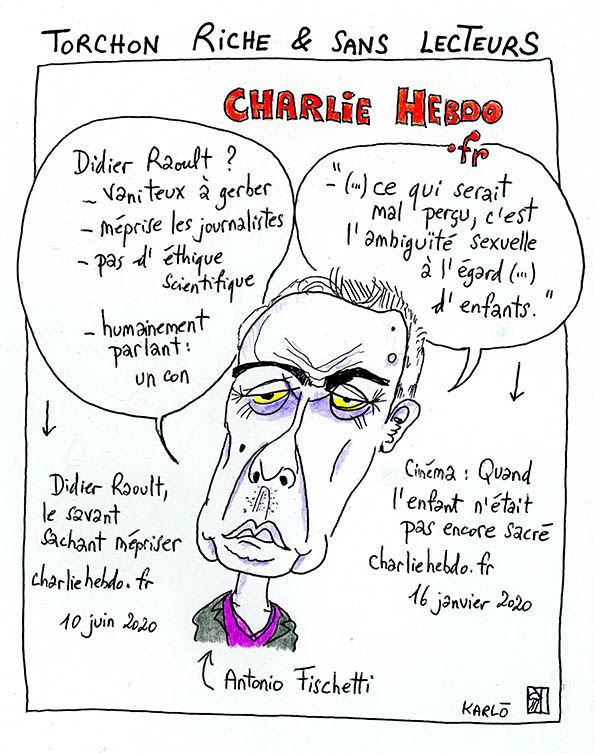 TORCHON RICHE & SANS LECTEURS
CHARLIE HEBDO
.fr
Didier Raoult ?
- vaniteux à gerber
- méprise les journalistes
- pas d'éthique
scientifique
- humainement
parlant :
un con
- "(...) ce qui serait
mal perçu, c'est
l'ambiguïté sexuelle
à l'égard (...)
d'enfants."
Didier Raoult,
le savant
sachant mépriser
charliehebdo.fr
10 juin 2020
Cinéma : Quand
l'enfant n'était
pas encore sacré
charliehebdo.fr
16 janvier 2020
Antonio Fischetti
KARLŌ